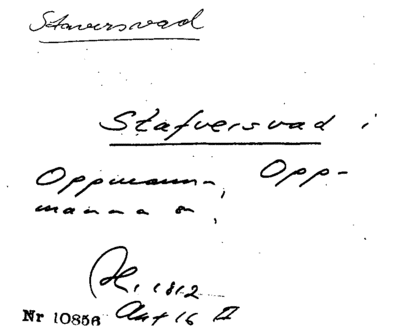 Staversvad
Stafversvad i
Oppmanna, Opp-
manna sn,
1812
Nr 10856 Akt 16 II